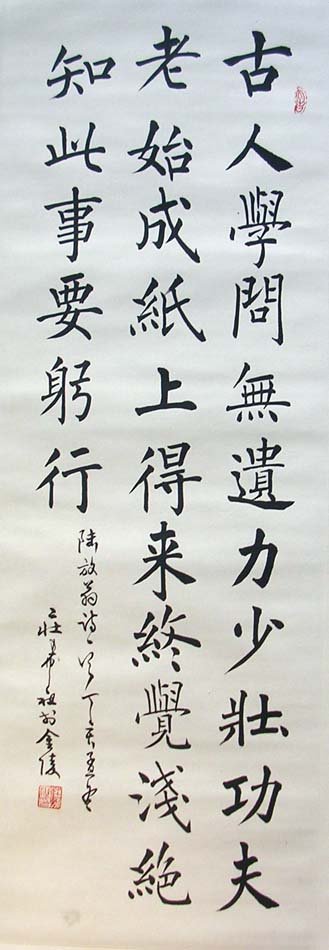 古人學問無遺力少壯功夫
老始成紙上得来終覺淺絕
知此事要躬行
陸放翁詩一首丁亥
於金陵